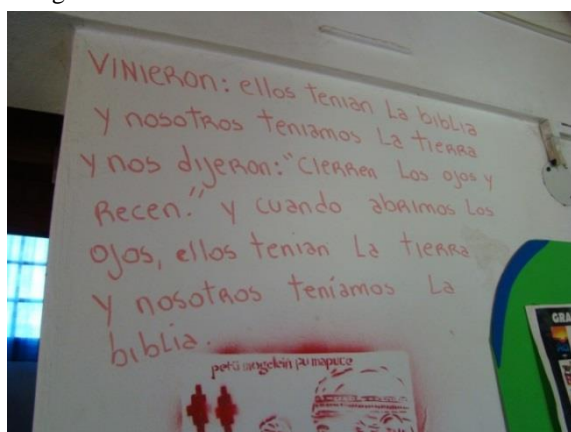 VINIERON: ellos tenian La biblia
y nosotros teniamos La tierra
y nos dijeron: "Cierren Los ojos y
Recen." y cuando abrimos Los
ojos, ellos tenian La tierra
y nosotros teníamos La
biblia.
petú mogelein pu mapuce
GRA